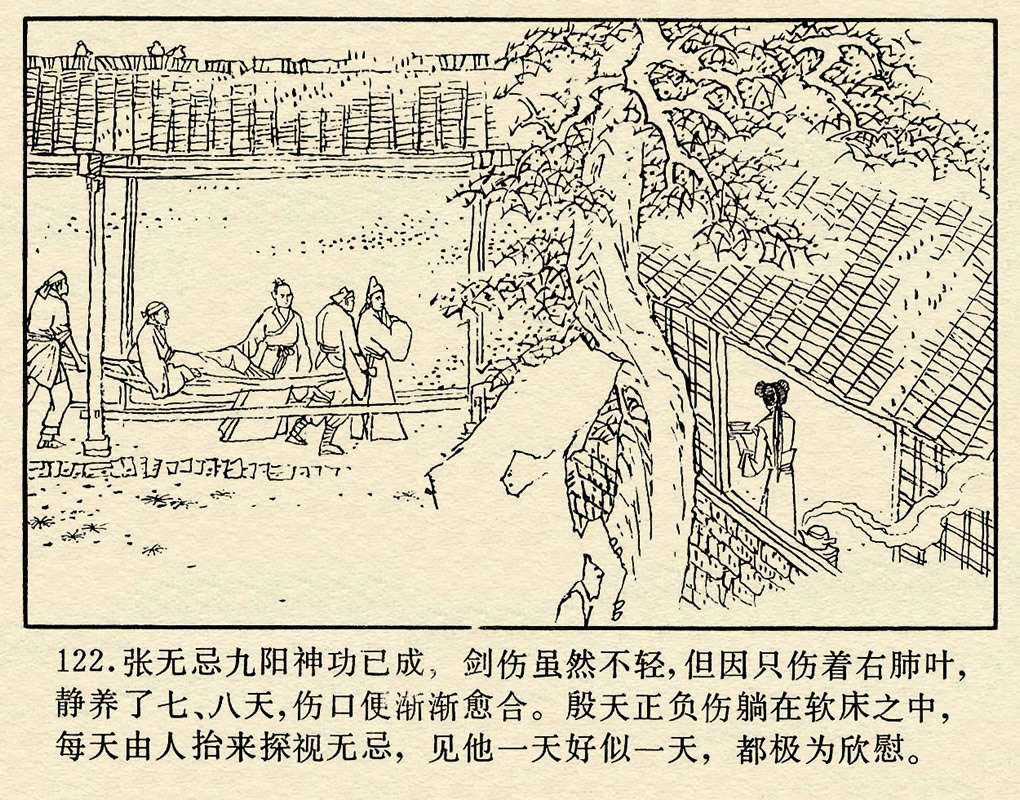 122.张无忌九阳神功已成，剑伤虽然不轻，但因只伤着右肺叶，
静养了七、八天，伤口便渐渐愈合。殷天正负伤躺在软床之中，
每天由人抬来探视无忌，见他一天好似一天，都极为欣慰。